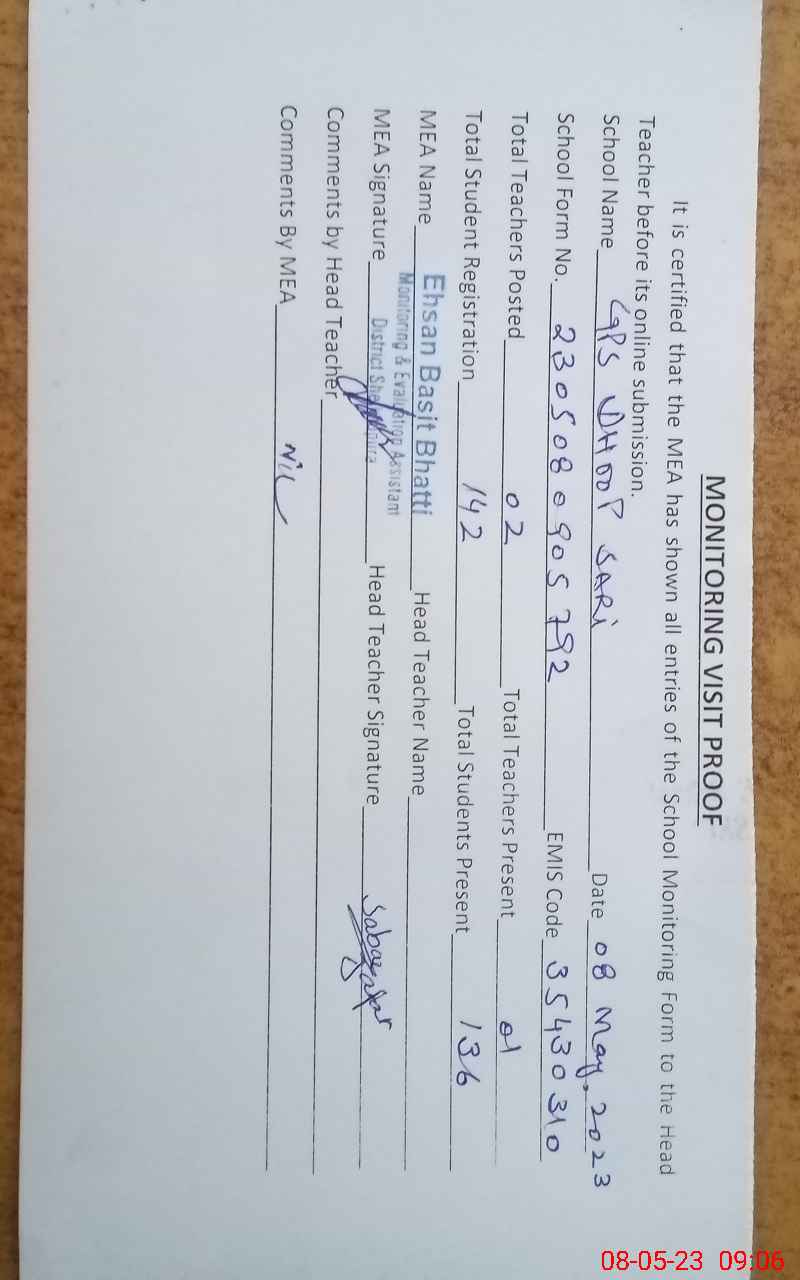 MONITORING VISIT PROOF
It is certified that the MEA has shown all entries of the School Monitoring Form to the Head
Teacher before its online submission.
School Name GPS DHOOP SARI Date 08 May, 2023
School Form No. 2305080905792 EMIS Code 35430310
Total Teachers Posted 02 Total Teachers Present 01
Total Student Registration 142 Total Students Present 136
MEA Name Ehsan Basit Bhatti Head Teacher Name
Monitoring & Evaluation Assistant
MEA Signature District Head Teacher Signature
Comments by Head Teacher
Comments By MEA Nil
08-05-23 09:06